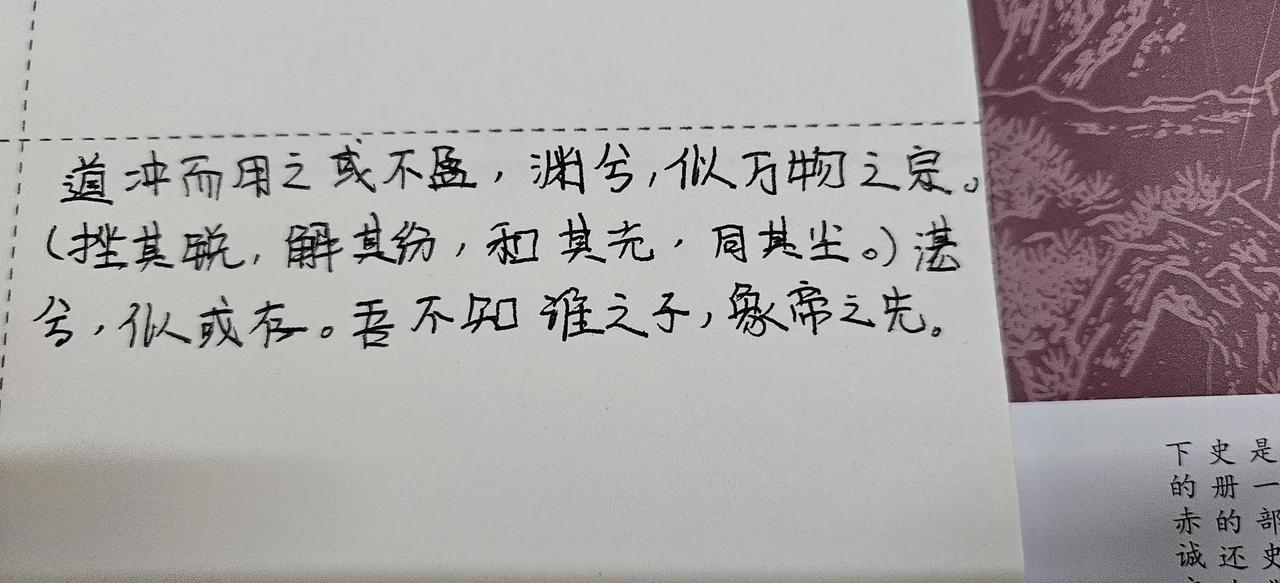 道冲而用之或不盈，渊兮，似万物之宗。
（挫其锐，解其纷，和其光，同其尘。）湛
兮，似或存。吾不知谁之子，象帝之先。
下史是
的册一
赤的部
诚还史